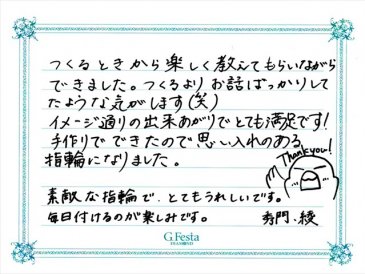 つくるときから楽しく教えてもらいながら
できました。つくるより お話ばっかりして
たような気がします(笑)
イメージ通りの出来あがりでとても満足です!
手作りでできたので思い入れのある
指輪になりました。
Thank you!
素敵な指輪で、とてもうれしいです。
毎日付けるのが楽しみです。
秀門・綾
G.Festa
DIAMOND